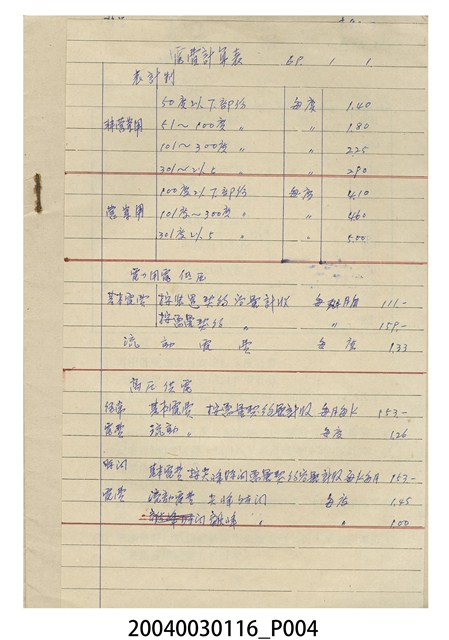 電費計算表 69. 1 1
表計制
非營業用 50度以下部份 每度 1.40
51～100度 〃 〃 1.80
101～300度 〃 〃 2.25
301以上 〃 2.90
營業用 100度以下部份 每度 4.10
101度～300度 〃 〃 4.60
301度以上 〃 5.00
電力用電 低壓
基本電費 按裝置契約容量計收 每 月 111.-
按需量契約 〃 〃 159.-
流動電費 每度 1.33
高壓供電
電費 基本電費 按需量契約容量計收 每月每K 153-
流動 〃 每度 1.26
時間 基本電費 按尖峰時間需量契約容量計收 每K每月 153-
電費 流動電費 尖峰時間 每度 1.45
離峰 〃 〃 1.00
20040030116_P004